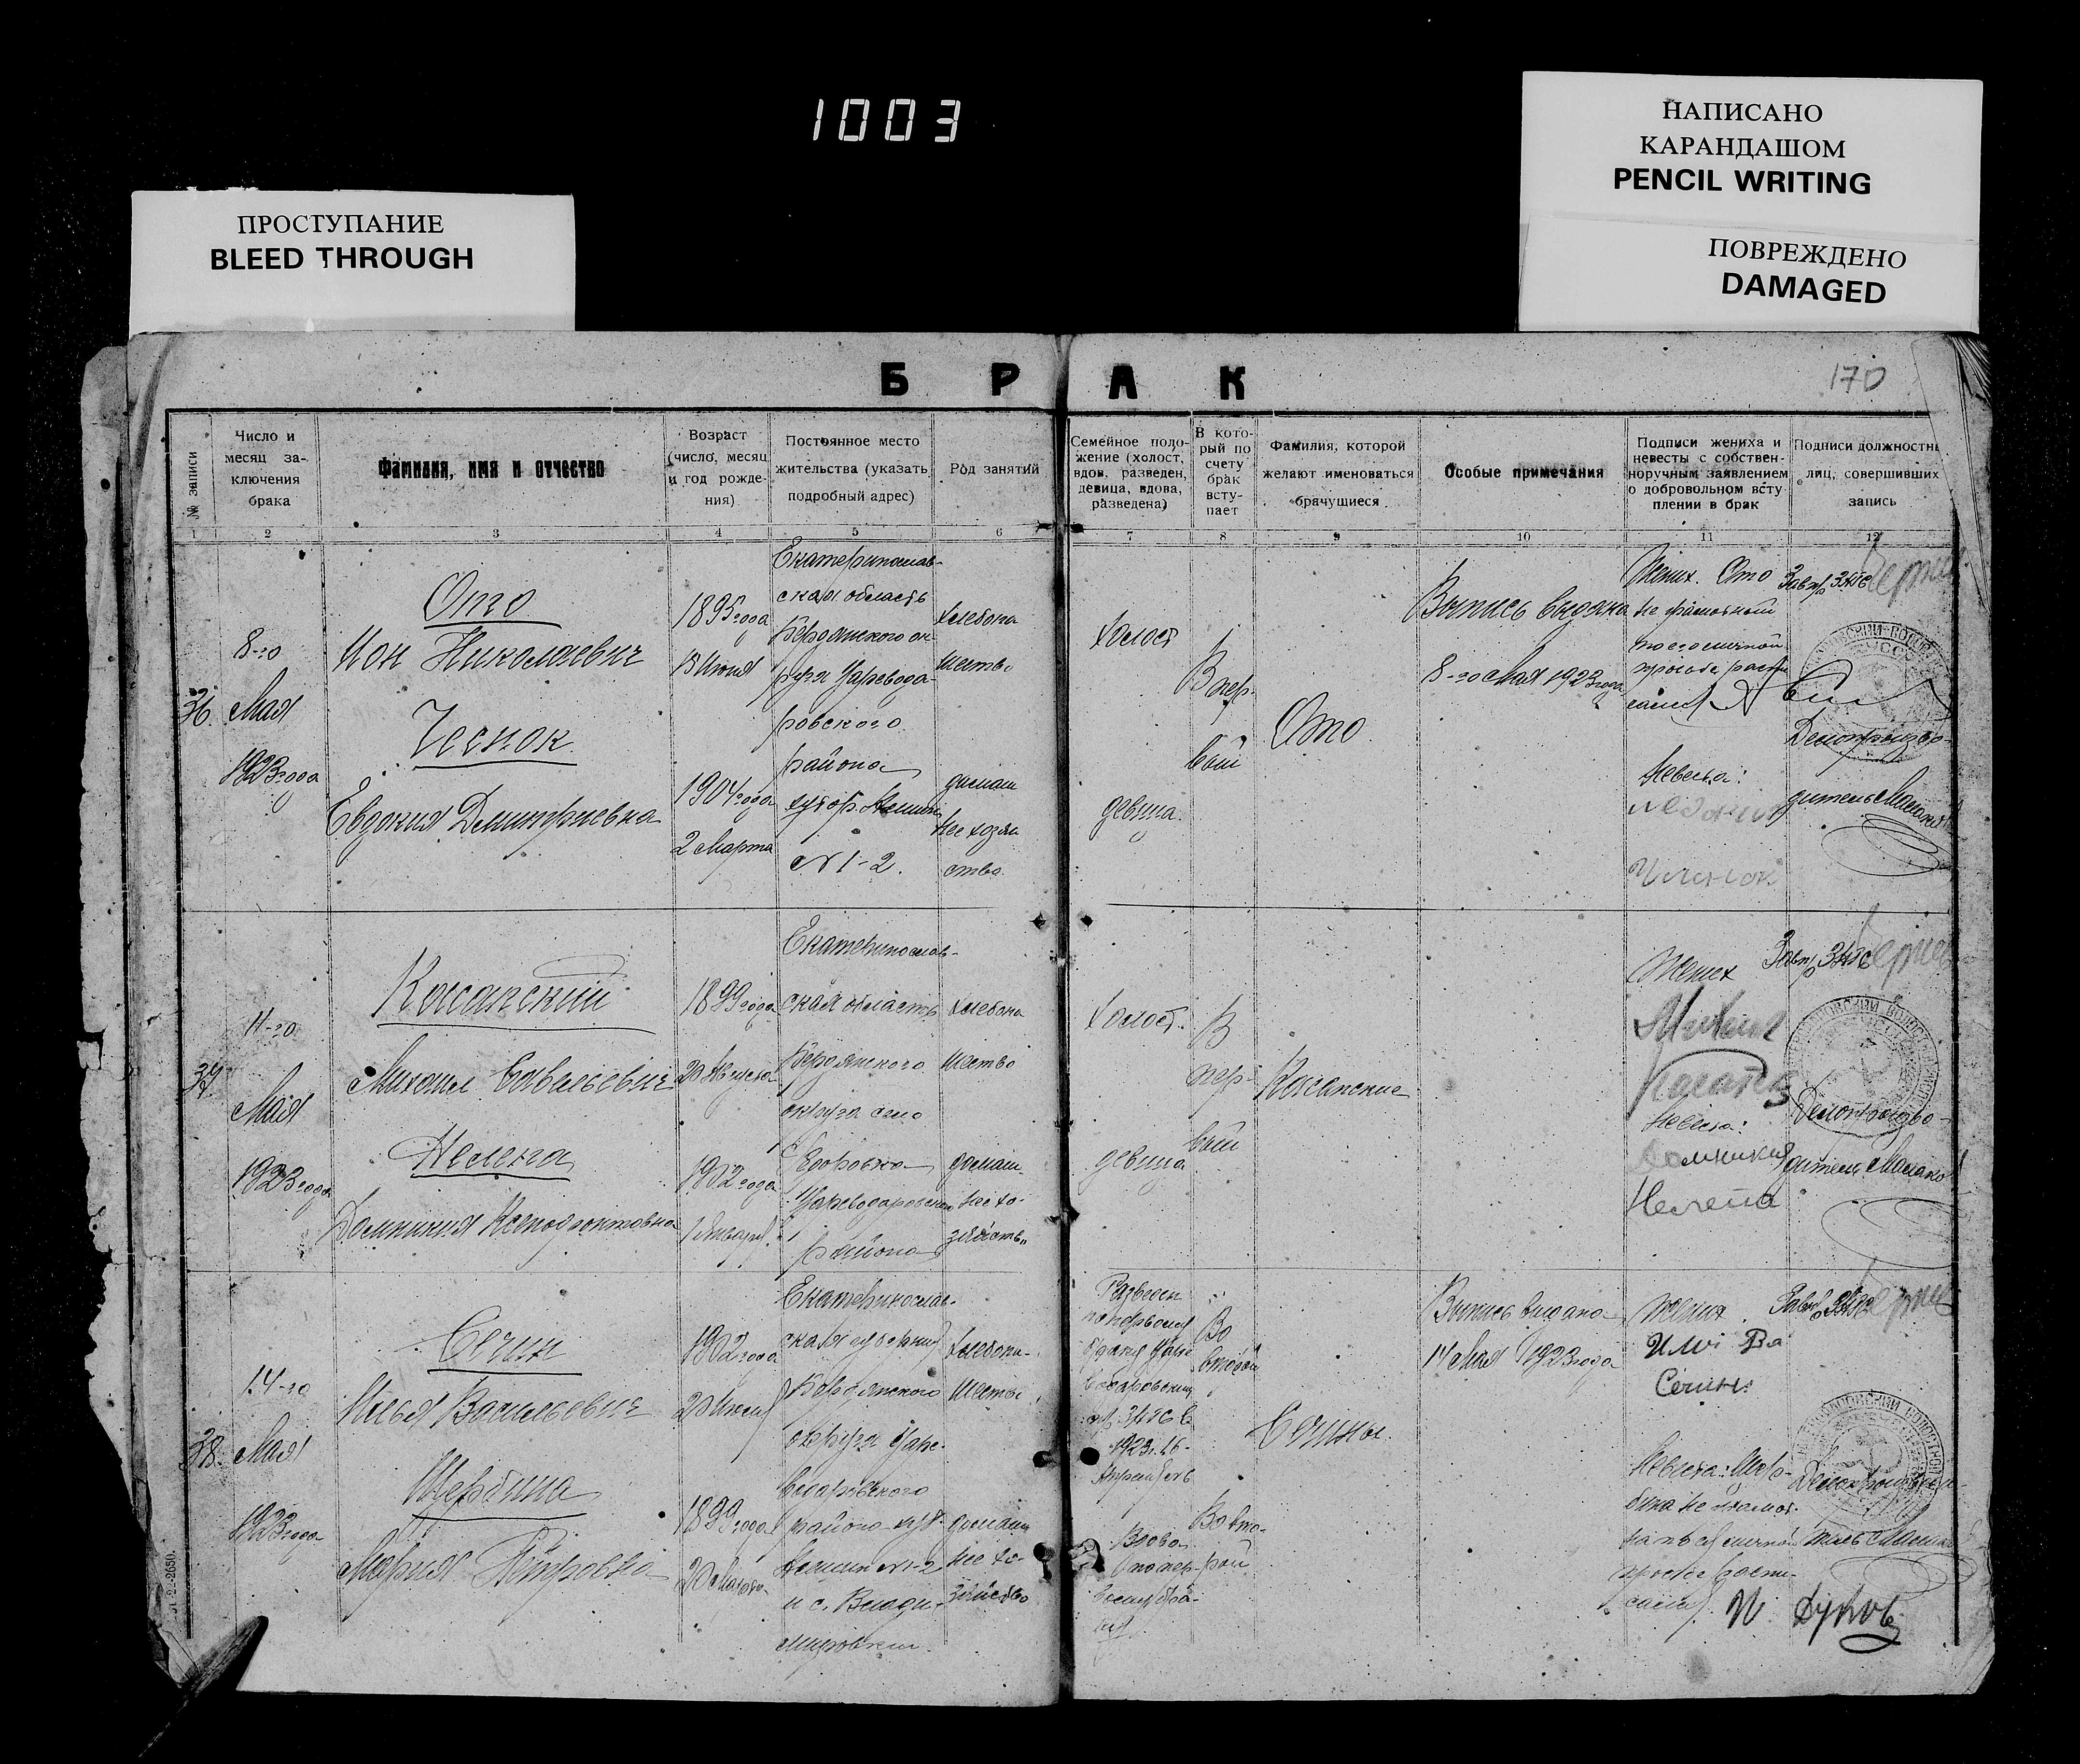 1003
НАПИСАНО
КАРАНДАШОМ
PENCIL WRITING
ПОВРЕЖДЕНО
DAMAGED
ПРОСТУПАНИЕ
BLEED THROUGH
БРАК
170
№ записи
Число и
месяц за-
ключения
брака
Фамилия, имя и отчество
Возраст
(число, месяц
и год рожде-
ния)
Постоянное место
жительства (указать
подробный адрес)
Род занятий
Семейное поло-
жение (холост,
вдов, разведен,
девица, вдова,
разведена)
В кото-
рый по
счету
брак
всту-
пает
Фамилия, которой
желают именоваться
брачущиеся
Особые примечания
Подписи жениха и
невесты с собствен-
норучным заявлением
о добровольном всту
плении в брак
Подписи должностн
лиц, совершивших
запись
1 2 3 4 5 6 7 8 9 10 11 12
36.
8-го
Мая
1923 года
Ото
Ион Николаевич
Чеснок
Евдокия Дмитриевна
1895 года
13 Июня
1904 года
2 Марта
Екатеринослав-
ская область
Бердянского ок-
руга Царевода-
ровского
района
хутор.
№ 1-2.
хлебопа
шество
домаш
нее хозяй
ство
холост
девица.
В пер-
вый
Ото
Выпись выдана
8-го Мая 1923 года
Жених. Ото
не грамотный
по его личной
просьбе распи
Невеста:
Завпр ЗАГС
Делопроизво-
дитель
37
11-го
Мая
1923 года
Косанский
Михаил Савельевич
Нелепа
Домникия Ксенофонтовна
1899 года
20 Августа
1902 года
1 Января.
Екатеринослав-
ская область
Бердянского
округа село
Егоровка
Цареводаровского
района
хлебопа
шество
домаш-
нее хо-
зяйство
холост.
девица
В
пер-
вый
Косанские
Жених
Михаил
Невеста:
Домникия
Нелепа
Завпр ЗАГС
Делопроизво-
дитель
38.
14-го
Мая
1923 года
Сечин
Илья Васильевич
Щербина
Мария Петровна
1902 года
20 Июля
1899 года
20 Марта
Екатеринослав-
ская губерния
Бердянского
округа Царе-
водаровского
района хут.
№ 1-2
и с. Влади-
мировки.
хлебопа-
шество
домаш
нее хо-
зяйство
Разведен
по первому
браку Царе
водаровским
ЗАГС в
1923 г. 16-
Апреля
Вдова
по пер-
вому бра-
ку
Во
второй
Во вто-
рой
Сечины.
Выпись выдана
14 Мая 1923 года
Жених
Илі Ва
Сечин
Невеста: Щер-
бина не грамот-
на по ея личной
просьбе распи-
Завпр ЗАГС